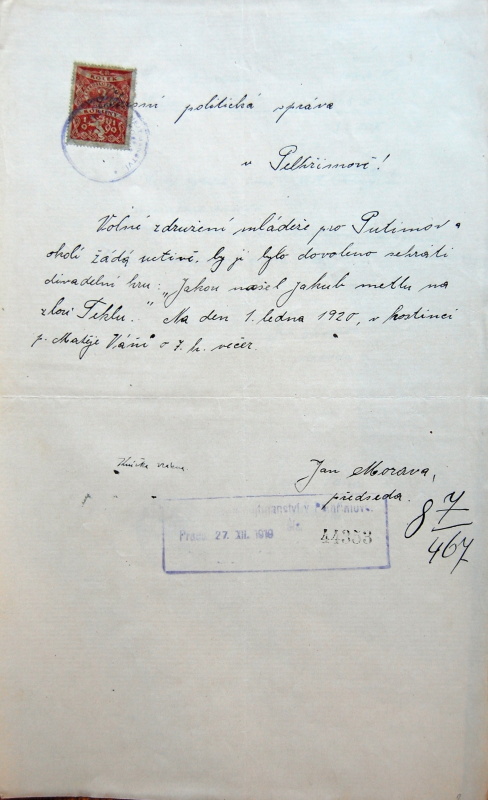 KOLEK
politická správa
v Pelhřimově!
Volné združení mládeže pro Putimov a
okolí žádá uctivě, by jí bylo dovoleno sehráti
divadelní hru: „Jakou našel Jakub metlu na
zlou Teklu." Na den 1. ledna 1920, v hostinci
p. Matěje Váni o 7. h. večer.
Knížka vrácena
Jan Morava,
předseda.
8 7/467
27. XII. 1919
44353